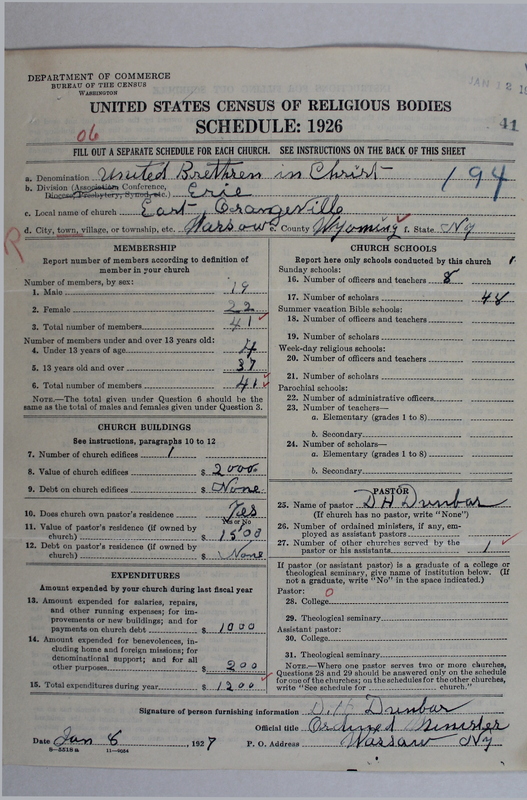 DEPARTMENT OF COMMERCE
BUREAU OF THE CENSUS
WASHINGTON
JAN 12 19
UNITED STATES CENSUS OF RELIGIOUS BODIES
SCHEDULE: 1926
06
41
FILL OUT A SEPARATE SCHEDULE FOR EACH CHURCH. SEE INSTRUCTIONS ON THE BACK OF THIS SHEET
a. Denomination United Brethren in Christ
194
b. Division (Association, Conference, Diocese, Presbytery, Synod, etc.) Erie
c. Local name of church East Orangeville
d. City, town, village, or township, etc. Warsaw e. County Wyoming f. State NY
R
MEMBERSHIP
Report number of members according to definition of
member in your church
Number of members, by sex:
1. Male 19
2. Female 22
3. Total number of members 41
Number of members under and over 13 years old:
4. Under 13 years of age 4
5. 13 years old and over 37
6. Total number of members 41
NOTE.—The total given under Question 6 should be the
same as the total of males and females given under Question 3.
CHURCH BUILDINGS
See instructions, paragraphs 10 to 12
7. Number of church edifices 1
8. Value of church edifices $ 2000
9. Debt on church edifices $ None
10. Does church own pastor's residence? Yes
Yes or No
11. Value of pastor's residence (if owned by
church) $ 1500
12. Debt on pastor's residence (if owned by
church) $ None
EXPENDITURES
Amount expended by your church during last fiscal year
13. Amount expended for salaries, repairs,
and other running expenses; for im-
provements or new buildings; and for
payments on church debt $ 1000
14. Amount expended for benevolences, in-
cluding home and foreign missions; for
denominational support; and for all
other purposes $ 200
15. Total expenditures during year $ 1200
CHURCH SCHOOLS
Report here only schools conducted by this church
Sunday schools:
16. Number of officers and teachers 8
17. Number of scholars 48
Summer vacation Bible schools:
18. Number of officers and teachers
19. Number of scholars
Week-day religious schools:
20. Number of officers and teachers
21. Number of scholars
Parochial schools:
22. Number of administrative officers
23. Number of teachers—
a. Elementary (grades 1 to 8)
b. Secondary
24. Number of scholars—
a. Elementary (grades 1 to 8)
b. Secondary
PASTOR
25. Name of pastor D H Dunbar
(If church has no pastor, write "None")
26. Number of ordained ministers, if any, em-
ployed as assistant pastors
27. Number of other churches served by the
pastor or his assistants 1
If pastor (or assistant pastor) is a graduate of a college or
theological seminary, give name of institution below. (If
not a graduate, write "No" in the space indicated.)
Pastor: 0
28. College
29. Theological seminary
Assistant pastor:
30. College
31. Theological seminary
NOTE.—Where one pastor serves two or more churches,
Questions 28 and 29 should be answered only on the schedule
for one of the churches; on the schedules for the other churches,
write "See schedule for church."
Signature of person furnishing information D. H. Dunbar
Official title Ordained Minister
Date Jan 8, 1927 P. O. Address Warsaw NY
8—5518a 11—9064